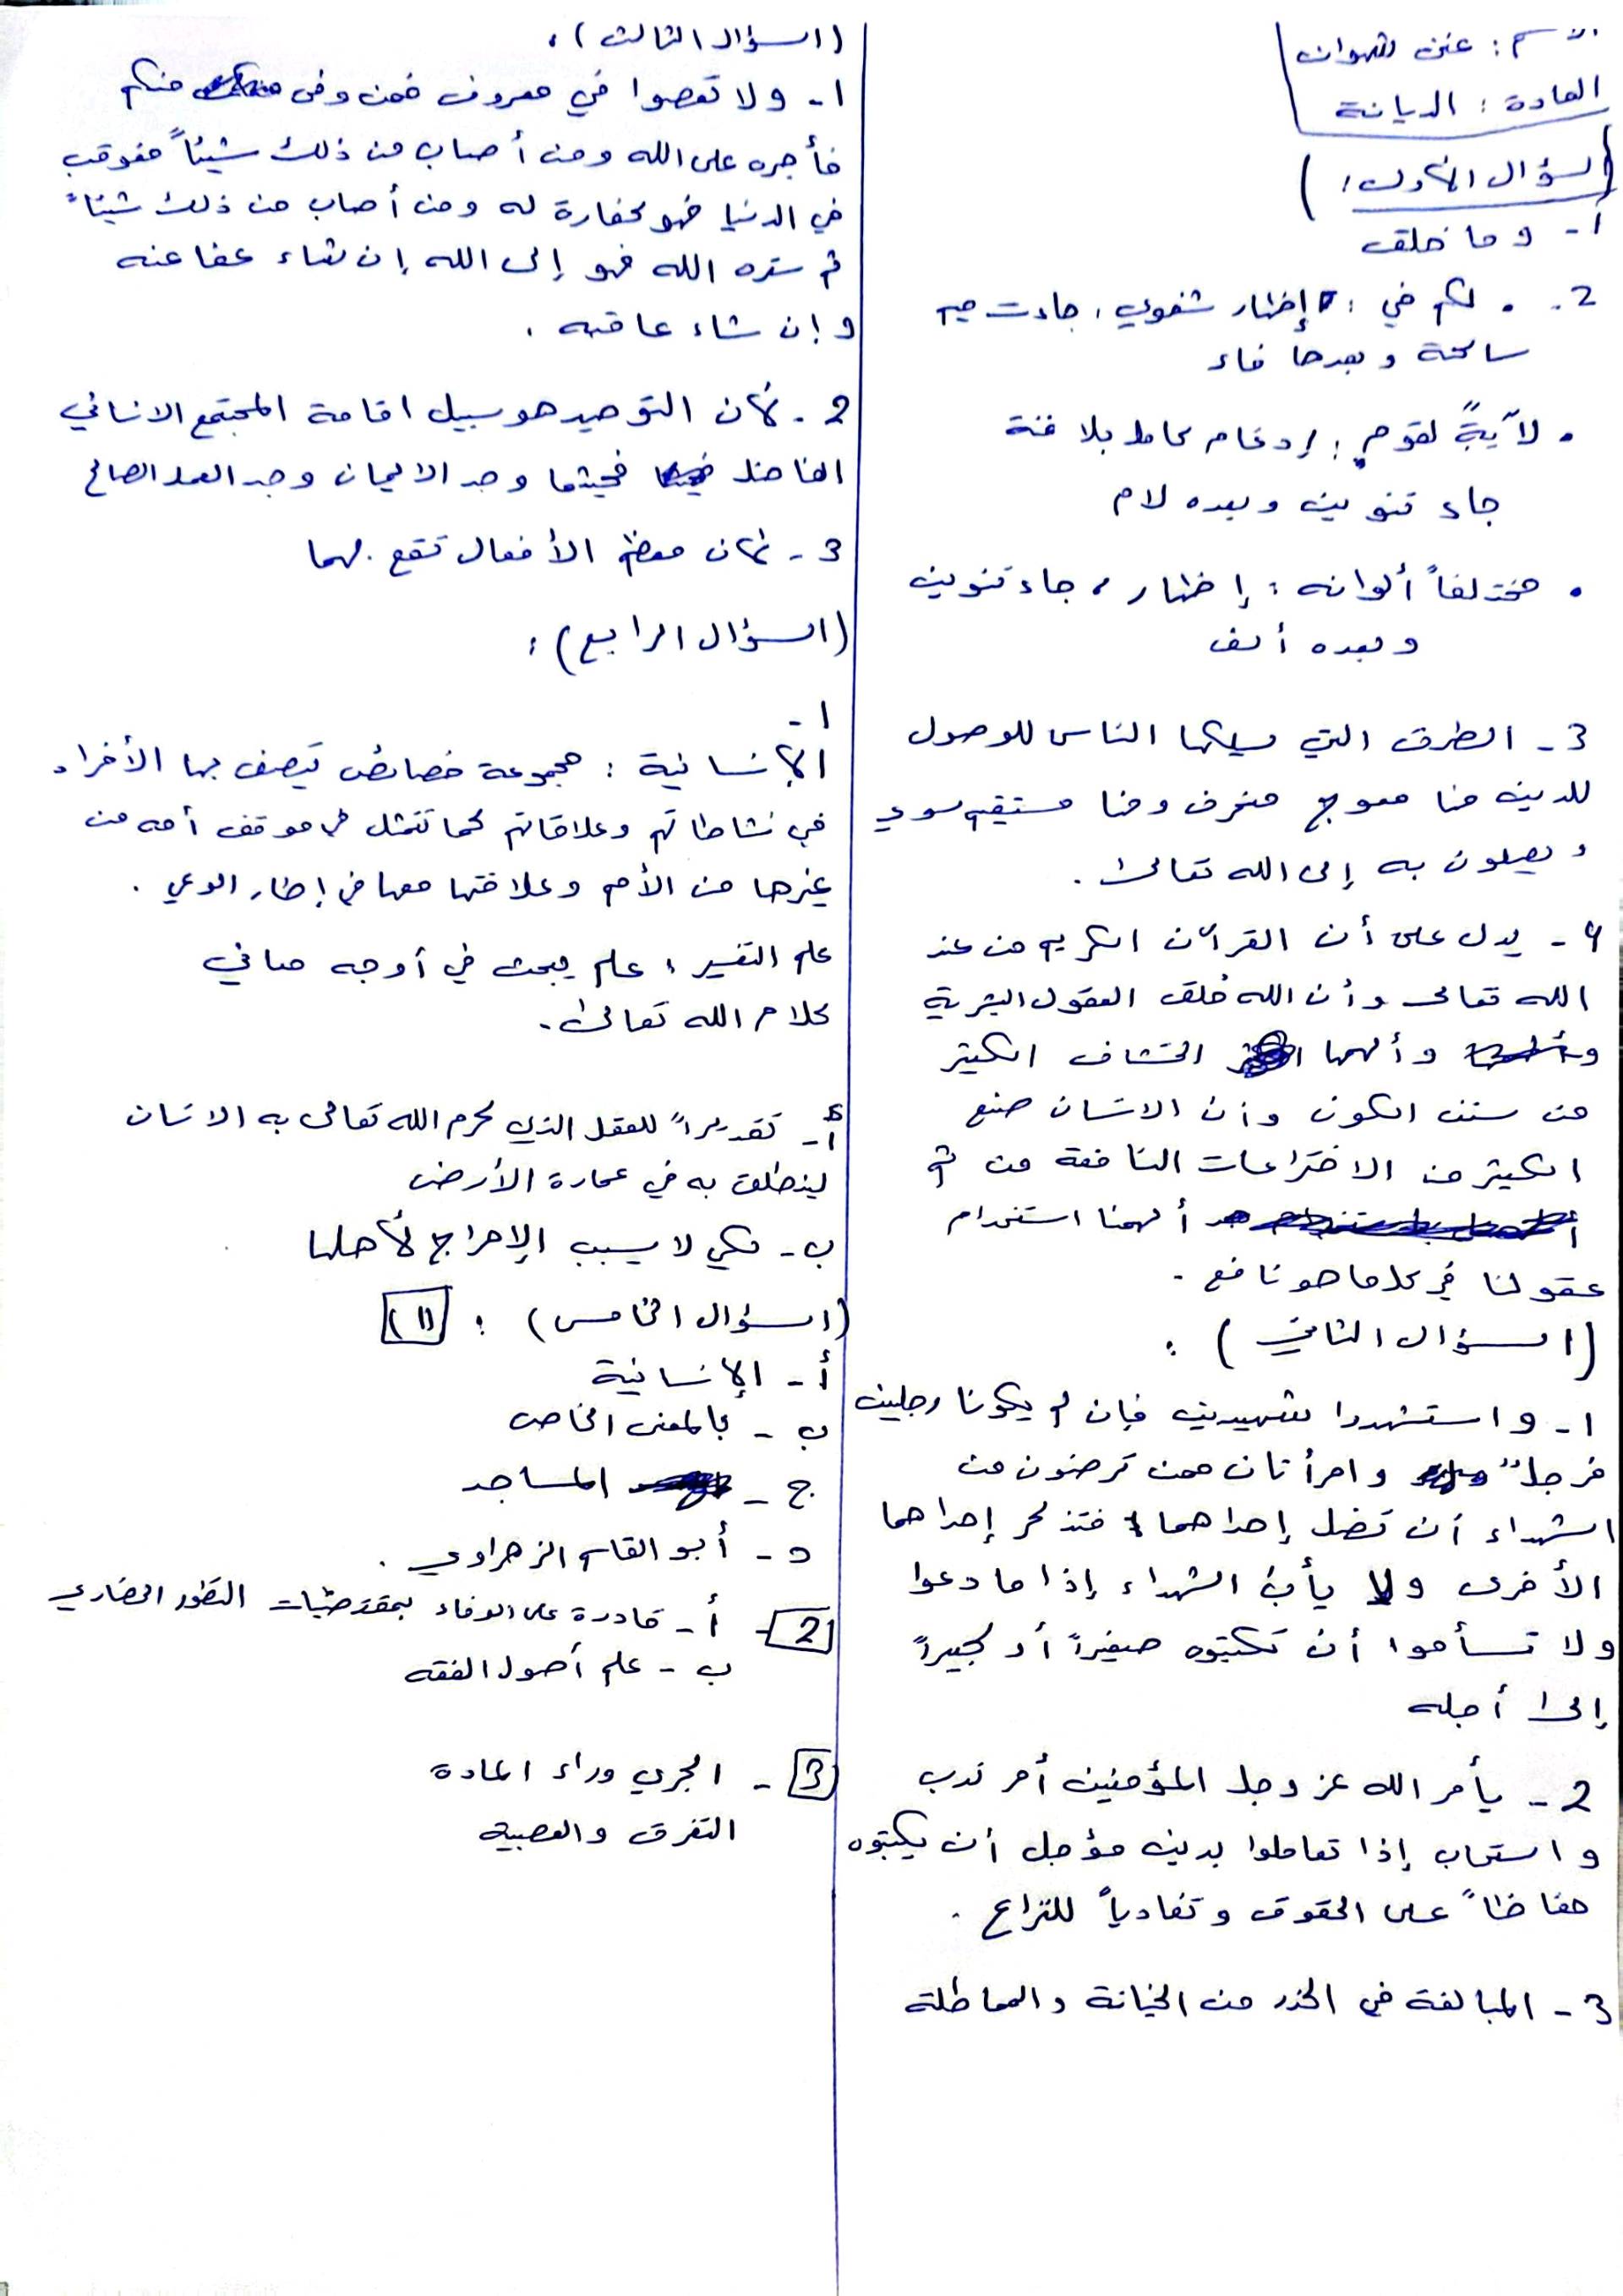 الاسم : شهوان
المادة : الديانة
(السؤال الأول :)
أ - وما خلق
2 - • لكم في : إظهار شفوي ، جاءت ميم
ساكنة وبعدها فاء
• لآيةً لقوم : إدغام كامل بلا غنة
جاء تنوين وبعده لام
• مختلفاً ألوانه : إظهار ، جاء تنوين
وبعده ألف
3 - الطرق التي يسلكها الناس للوصول
للدين منا معوج منحرف ومنا مستقيم سوي
و يصلون به إلى الله تعالى .
4 - يدل على أن القرآن الكريم من عند
الله تعالى وأن الله خلق العقول البشرية
وألهمها اكتشاف الكثير
من سنن الكون وأن الانسان صنع
الكثير من الاختراعات النافعة من ثم
ألهمنا استخدام
عقولنا في كل ما هو نافع .
(السؤال الثاني) :
1 - واستشهدوا شهيدين فإن لم يكونا رجلين
فرجلٌ وامرأتان ممن ترضون من
الشهداء أن تضل إحداهما فتذكر إحداهما
الأخرى ولا يأب الشهداء إذا ما دعوا
ولا تسأموا أن تكتبوه صغيراً أو كبيراً
إلى أجله
2 - يأمر الله عز وجل المؤمنين أمر ندب
واستحباب إذا تعاملوا بدين مؤجل أن يكتبوه
حفاظاً على الحقوق وتفادياً للنزاع .
3 - المبالغة في الحذر من الخيانة والمماطلة
(السؤال الثالث) :
1 - ولا تعصوا في معروف فمن وفى منكم
فأجره على الله ومن أصاب من ذلك شيئاً فعوقب
في الدنيا فهو كفارة له ومن أصاب من ذلك شيئاً
ثم ستره الله فهو إلى الله إن شاء عفا عنه
وإن شاء عاقبه .
2 - لأن التوحيد هو سبيل اقامة المجتمع الانساني
الفاضل فحيثما وجد الايمان وجد العمل الصالح
3 - لأن معظم الأفعال تقع بهما
(السؤال الرابع) :
1 -
الإنسانية : مجموعة خصائص يتصف بها الأفراد
في نشاطاتهم وعلاقاتهم كما تتمثل في موقف أمه من
غيرها من الأمم وعلاقتها معها في إطار الوعي .
علم التفسير : علم يبحث في أوجه معاني
كلام الله تعالى .
أ - تقديراً للعقل الذي كرم الله تعالى به الانسان
لينطلق به في عمارة الأرض
ب - لكي لا يسبب الإحراج لأهلها
(السؤال الخامس) : (1)
أ - الإنسانية
ب - بالمعنى الخاص
ج - المساجد
د - أبو القاسم الزهراوي .
2 - أ - قادرة على الوفاء بمقتضيات التطور الحضاري
ب - علم أصول الفقه
3 - الجري وراء المادة
التفرق والعصبية